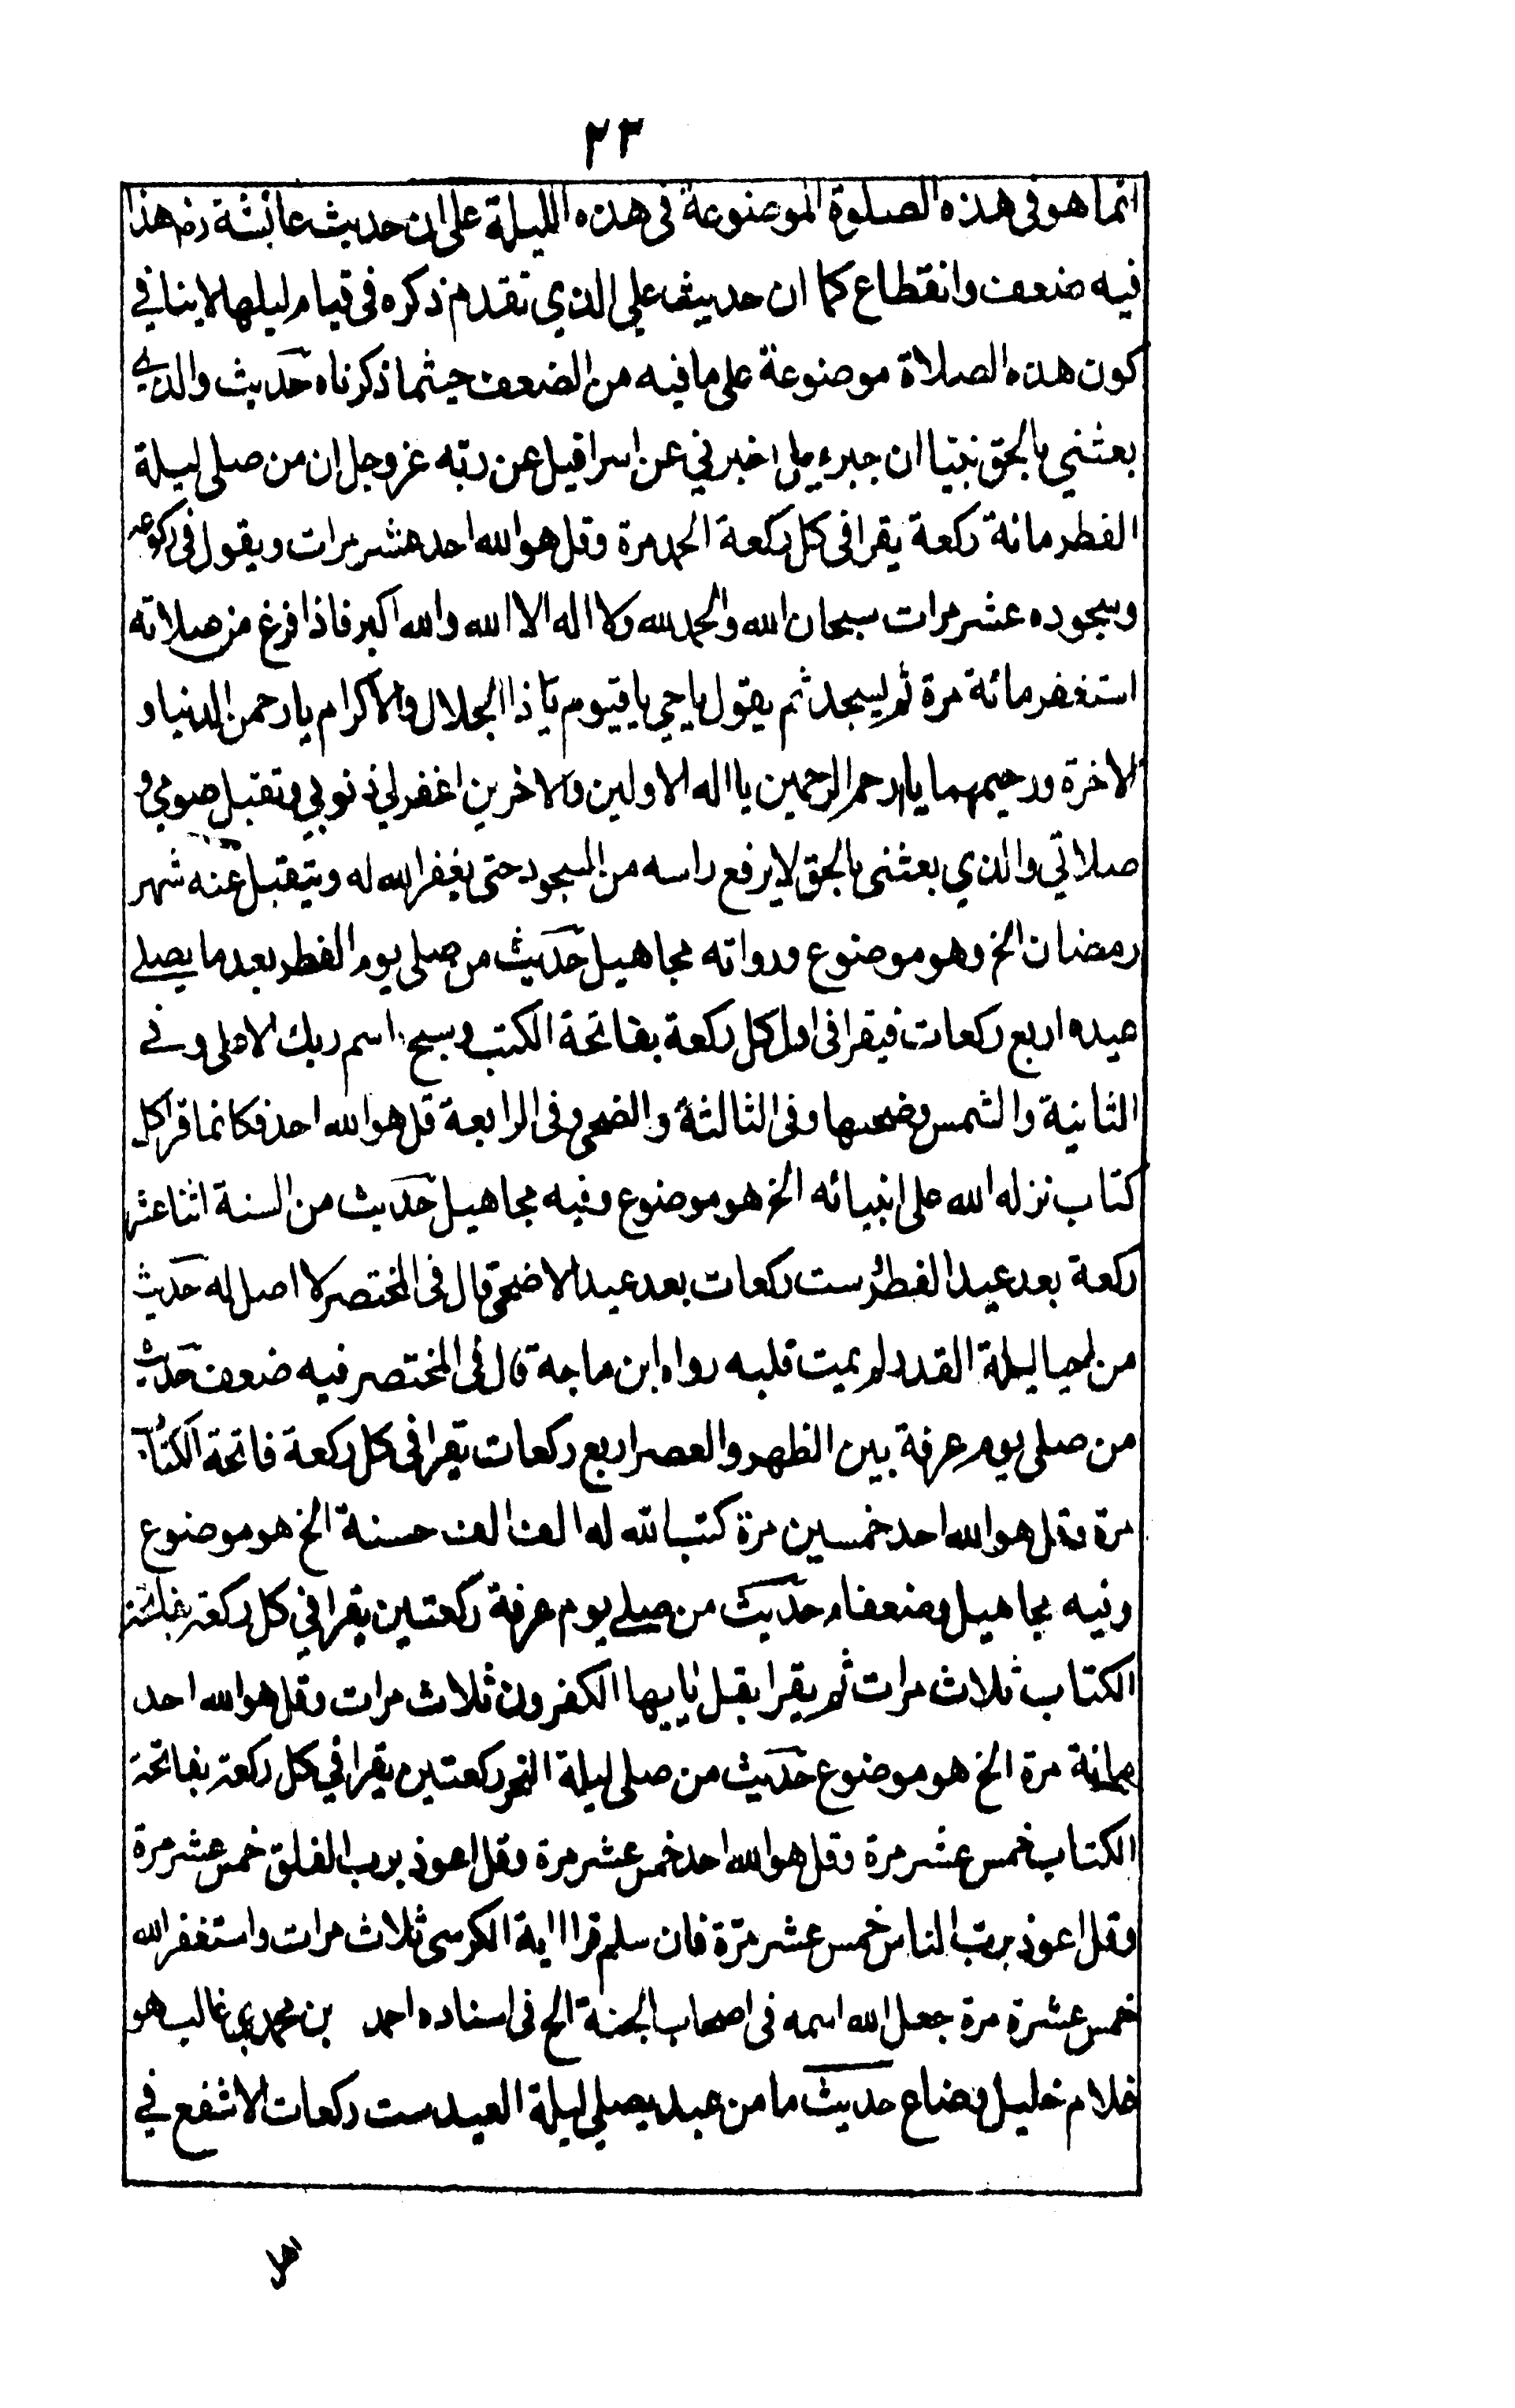 ٢٣
انما هو فى هذه الصلوة الموضوعة فى هذه الليلة على ان حديث عائشة رض هذا
فيه ضعف وانقطاع كما ان حديث علي الذي تقدم ذكره فى قيام ليلها لا ينافي
كون هذه الصلاة موضوعة على ما فيه من الضعف حيثما ذكرناه حديث والذي
بعثني بالحق نبيا ان جبرءيل اخبرني عن اسرافيل عن ربه عز وجل ان من صلى ليلة
الفطر مائة ركعة يقرا فى كل ركعة الحمد مرة وقل هو الله احد عشر مرات ويقول فى ركوعه
وسجوده عشر مرات سبحان الله والحمد لله ولا اله الا الله والله اكبر فاذا فرغ من صلاته
استغفر مائة مرة ثم يسجد ثم يقول يا حي يا قيوم يا ذا الجلال والاكرام يا رحمن الدنيا و
الاخرة ورحيمهما يا ارحم الرحمين يا اله الاولين والاخرين اغفر لي ذنوبي وتقبل صومي و
صلاتي والذي بعثنى بالحق لا يرفع راسه من السجود حتى يغفر الله له ويتقبل عنه شهر
رمضان الخ وهو موضوع ورواته مجاهيل حديث من صلى يوم الفطر بعد ما يصلے
عيده اربع ركعات فيقرا فى اول كل ركعة بفاتحة الكتب وسبح اسم ربك الاعلى وفے
الثانية والشمس وضحىها وفى الثالثة والضحى وفى الرابعة قل هو الله احد فكانما قرا كل
كتاب نزله الله على انبيائه الخ هو موضوع وفيه مجاهيل حديث من السنة اثنا عشر
ركعة بعد عيد الفطر وست ركعات بعد عيد الاضحى قال فى المختصر لا اصل له حديث
من احيا ليلة القدر لم يمت قلبه رواه ابن ماجة قال فى المختصر فيه ضعف حديث
من صلى يوم عرفة بين الظهر والعصر اربع ركعات يقرا فى كل ركعة فاتحة الكتاب
مرة وقل هو الله احد خمسين مرة كتب الله له الف الف حسنة الخ هو موضوع
وفيه مجاهيل وضعفاء حديث من صلے يوم عرفة ركعتين يقرا في كل ركعة بفاتحة
الكتاب ثلاث مرات ثم يقرا بقل يايها الكفرون ثلاث مرات وقل هو الله احد
مائة مرة الخ هو موضوع حديث من صلى ليلة النحر ركعتين يقرا في كل ركعة بفاتحة
الكتاب خمس عشر مرة وقل هو الله احد خمس عشر مرة وقل اعوذ برب الفلق خمس عشر مرة
وقل اعوذ برب الناس خمس عشر مرة فان سلم قرا اية الكرسى ثلاث مرات واستغفر الله
خمس عشرة مرة جعل الله اسمه فى اصحاب الجنة الخ فى اسناده احمد بن محمد بن غالب هو
غلام خليل وضاع حديث ما من عبد يصلي ليلة العيد ست ركعات الا شفع في